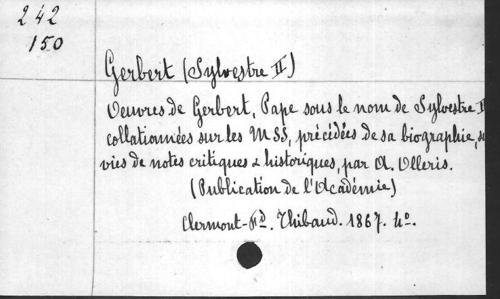 242
150
Gerbert (Sylvestre II)
Oeuvres de Gerbert, Pape sous le nom de Sylvestre II
collationnées sur les MSS, précédées de sa biographie, su
vies de notes critiques & historiques, par A. Olleris.
(Publication de l'Académie)
Clermont-Fd. Thibaud. 1867. 4o.